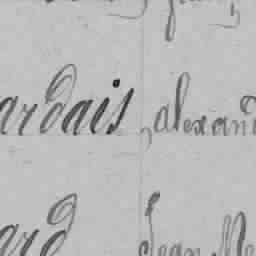 ardais, alexan
ard Jean Me